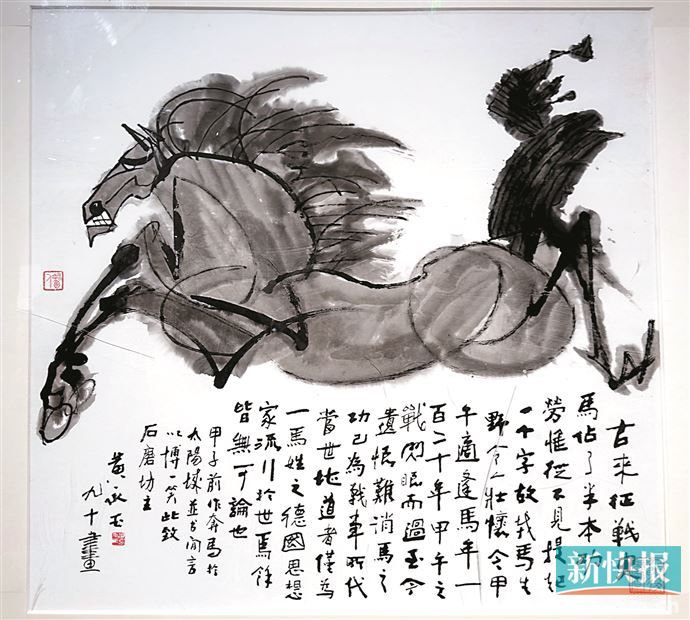 古來征戰史
馬佔了半本功
勞惟從不見提起
一个字故我馬生
野 壯懷今甲
午適逢馬年一
百二十年甲午之
戰閃眼而過至今
遺恨難消馬之
功已為戰車所代
當世地道者僅為
一馬姓之德國思想
家流行於世焉餘
皆無可論也
甲子前作奔馬於
太陽城並書閒言
以博一笑此致
石磨坊主
黃永玉
九十畫
新快报